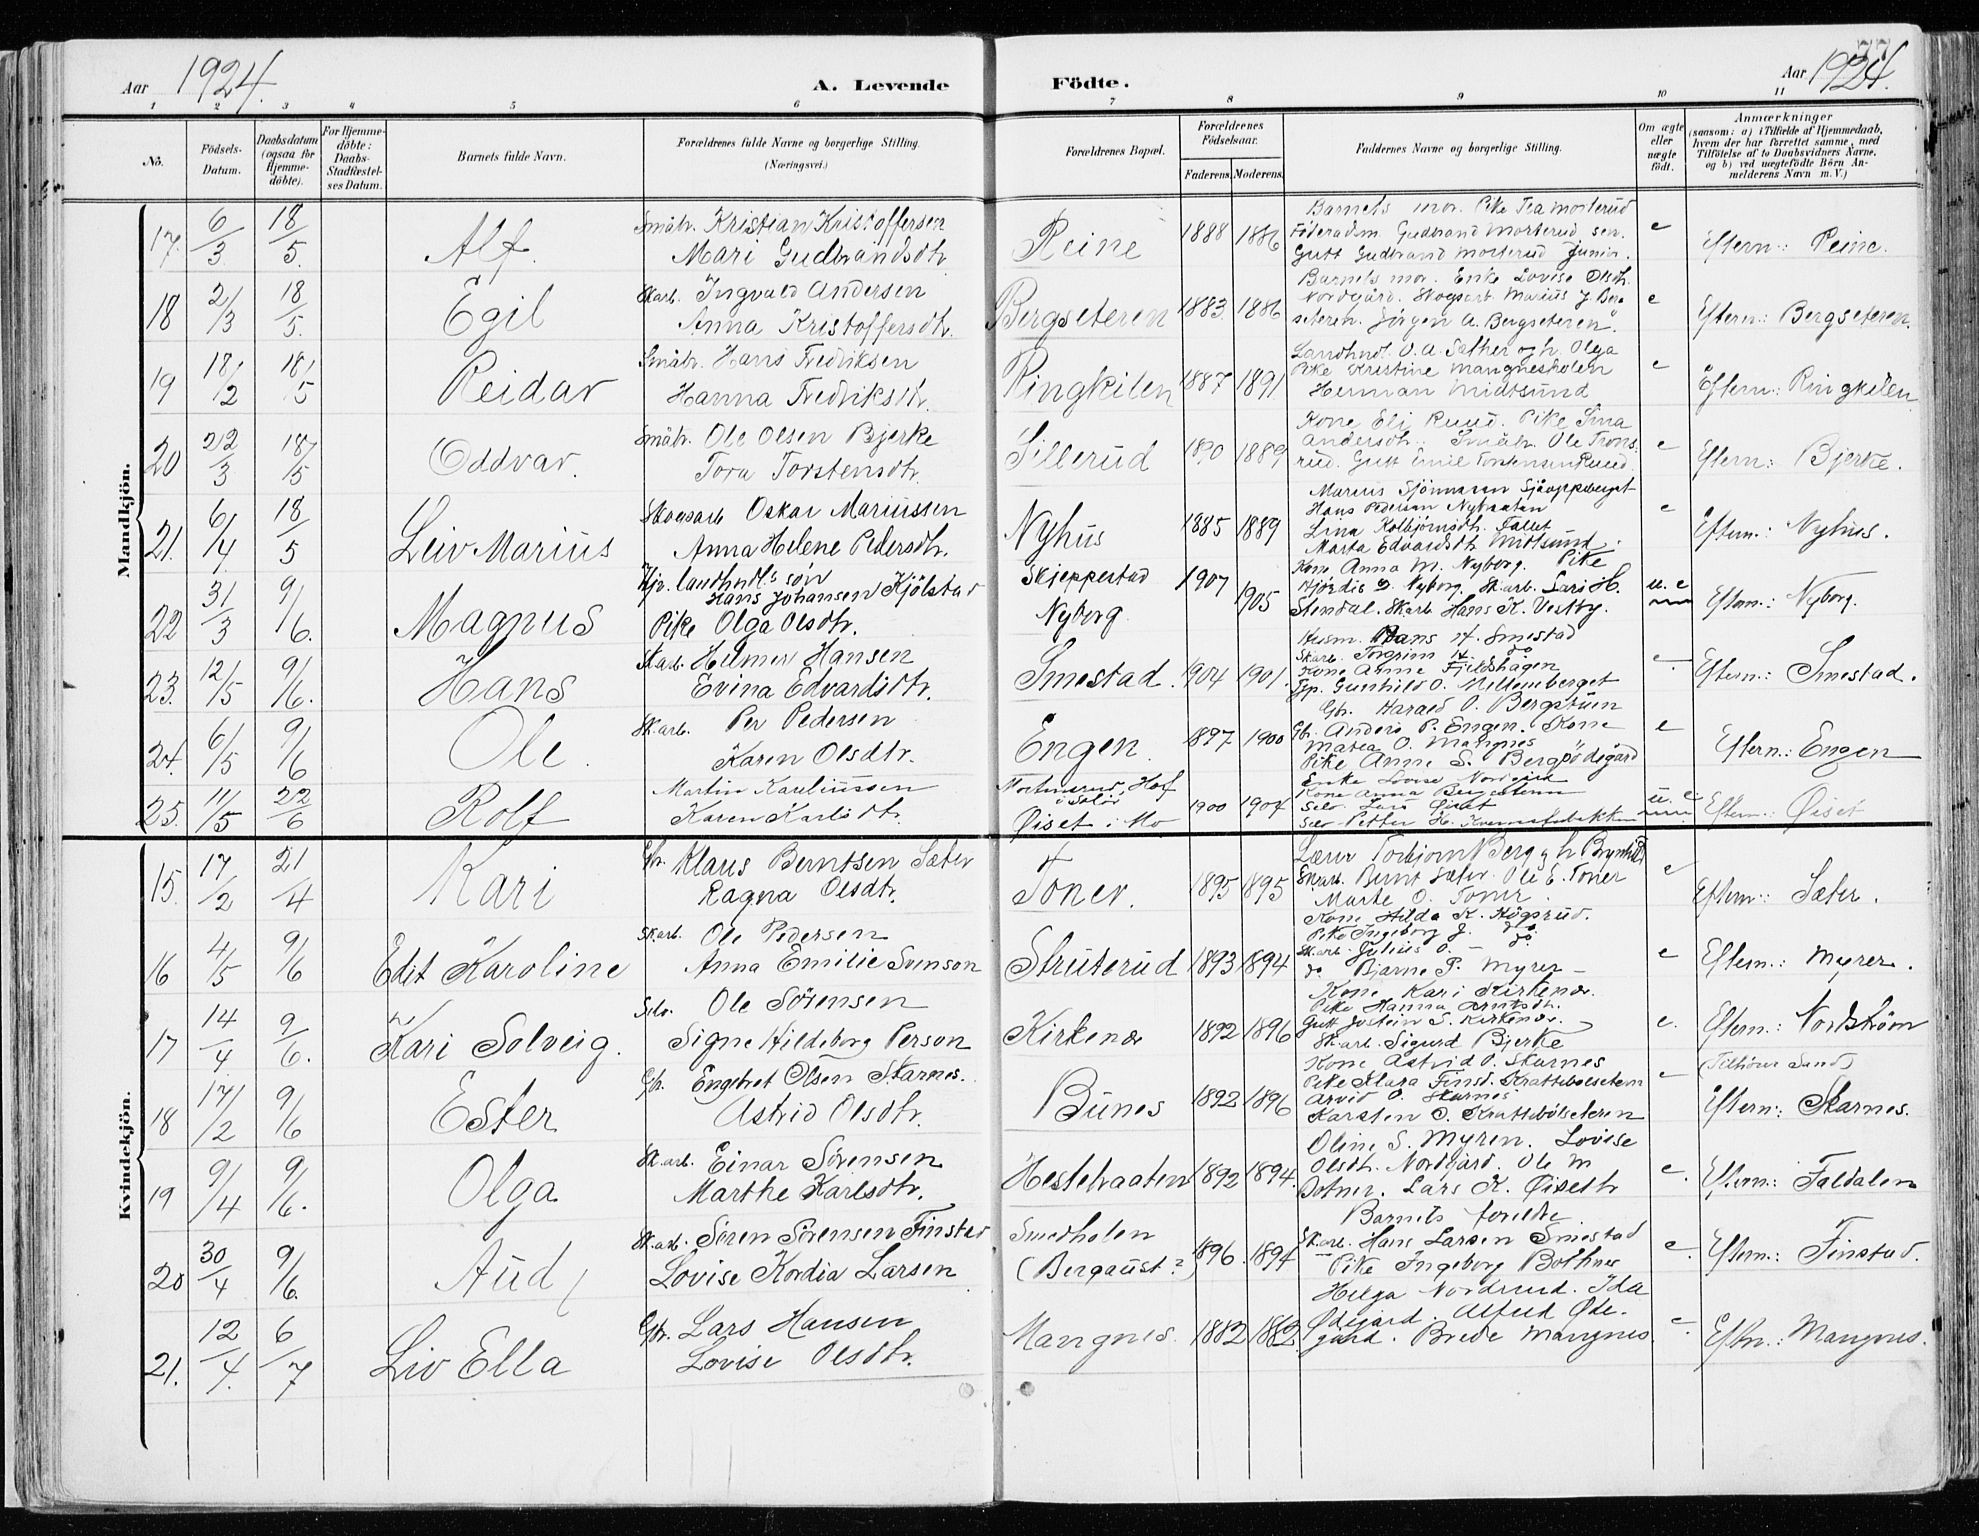 Aar 1924. A. Levende Födte. Aar 1924. 77
1 2 3 4 5 6 7 8 9 10 11
No. Födsels-Datum. Daabsdatum (ogsaa for Hjemmedöbte). For Hjemmedöbte: Daabs-Stadfæstelses Datum. Barnets fulde Navn. Forældrenes fulde Navne og borgerlige Stilling. (Næringsvei.) Forældrenes Bopæl. Forældrenes Födselsaar. Faderens Moderens Faddernes Navne og borgerlige Stilling. Om ægte eller uægte födt. Anmærkninger (saasom: a) i Tilfælde af Hjemmedaab, hvem der har forrettet samme, med Tilföielse af to Daabsvidners Navne, og b) ved uægtefödte Börn Anmelderens Navn m. V.)
Mandkjön.
17. 6/3 18/5. Alf. Småbr. Kristian Kristoffersen Mari Gudbrandsdtr. Reine 1888 1886 Barnets mor. Pike Tea Morterud Föderådm. Gudbrand Morterud sen. Gutt Gudbrand Morterud junior. e Eftern.: Reine.
18 2/3 18/5. Egil Skarb. Ingvald Andersen Anna Kristoffersdtr. Bergseteren 1883. 1886 Barnets mor. Enke Lovise Olsdtr. Nordgård. Skogsarb. Marius J. Bergseteren. Jörgen A. Bergseteren. e Eftern.: Bergseteren.
19 18/2 18/5 Reidar Småbr. Hans Fredriksen Hanna Fredriksdtr. Ringkilen 1887 1891 Landhndl. O. A. Sæther og h. Olga Pike Kristine Mangnesholen Herman Midtsund e Eftern.: Ringkilen
20 22/3 18/5 Oddvar. Småbr. Ole Olsen Bjerke Tora Torstensdtr. Sillerud 1890 1889 Kone Eli Ruud. Pike Lina Andersdtr. Småbr. Ole Tronsrud. Gutt Emil Torstensen Ruud. e Eftern.: Bjerke.
21. 6/4 18/5 Leiv Marius Skogsarb Oskar Mariussen Anna Helene Pedersdtr. Nyhus 1885 1889 Hans Pedersen Lina Kolbjörnsdtr. Fallet Marta Edvardsdtr Midtsund. e Eftern.: Nyhus.
22 31/3 9/6. Magnus Hjv. landhndl.s søn Hans Johansen Kjölstad Pike Olga Olsdtr. Skjeppestad Nyborg 1907 1905 Kone Anna M. Nyborg. Pike Hjördis D. Nyborg. Skarb. Lars H. Stendal. Skarb Hans K. Vestby. u. e Eftern.: Nyborg.
23. 12/5 9/6. Hans Skarb. Helmer Hansen Evina Edvardsdtr. Smestad. 1904 1901. Husm. Hans H. Smestad Skarb. Torfinn H. do Kone Anne Fjeldshagen Gunhild O. Mellemberget e. Eftern.: Smestad.
24. 6/5 9/6 Ole. Skarb. Per Pedersen Karen Olsdtr. Engen. 1897 1900 Gbr. Harald O. Bergstuen Gbr. Anders P. Engen. Kone Matea O. Mangnes Pike Anne S. Bergsödegård e Eftern.: Engen
25. 11/5 22/6 Rolf Martin Karluissen Karen Karlsdtr. Hof i Solör Øiset i Mo 1900 1904 Enke Lovise Nordgård Kone Anna Bergseteren Selv. Lars Øiset Selv Petter H. u. e. Eftern.: Øiset
Kvindekjön.
15. 17/2 21/4 Kari Gbr. Klaus Berntsen Sæter Ragna Olsdtr. Toner. 1895 1895 Lærer Torbjorn Berg og h Brynhild Skarb. Bernt Sæter. Ole E. Toner Marte O. Toner. e Eftern.: Sæter.
16 4/5 9/6 Edit Karoline Skarb. Ole Pedersen Anna Emilie Svenson Struterud 1893 1894 Kone Hilda K. Högsrud. Pike Ingeborg J. do. Skarb. Julius O. — do do Bjarne P. Myrer — e Eftern.: Myrer.
17 14/4 9/6. Kari Solveig. Selv. Ole Sörensen Signe Hildeborg Person Kirkenær 1892 1896 Kone Kari Kirkenær. Pike Hanna Arntsdtr. Gutt Jostein S. Kirkenær. Skarb. Sigurd Bjerke e. Eftern.: Nordström (Tilhörer Sand)
18 17/2 9/6 Ester Gbr. Engebret Olsen Skarnes. Astrid Olsdtr. Bunes 1892 1896 Kone Astrid O. Skarnes Pike Klara Finsd. Krattebölseteren Arvid O. Skarnes Karsten O. Krattebölseteren e Eftern.: Skarnes.
19 9/4 9/6. Olga Skarb. Einar Sörensen Marthe Karlsdtr. Hestebraaten 1892 1894. Oline S. Myren. Lovise Olsdtr. Nordgård. Ole M Botner. Lars K. Øiseth e. Eftern.: Faldalen
20 30/4 9/6. Aud Skarb. Sören Sörensen Finstad Lovise Kordia Larsen Smedholen (Bergaust?) 1896. 1894 Barnets forældre Skarb. Hans Larsen Smestad Pike Ingeborg Bothner e. Eftern.: Finstad.
21. 12/4. 6/7 Liv Ella Gbr. Lars Hansen Lovise Olsdtr. Mangnes. 1882 1882. Helga Nordsrud. Ida Ødegård. Alfred Ødegård. Brede Mangnes. e. Eftn.: Mangnes.